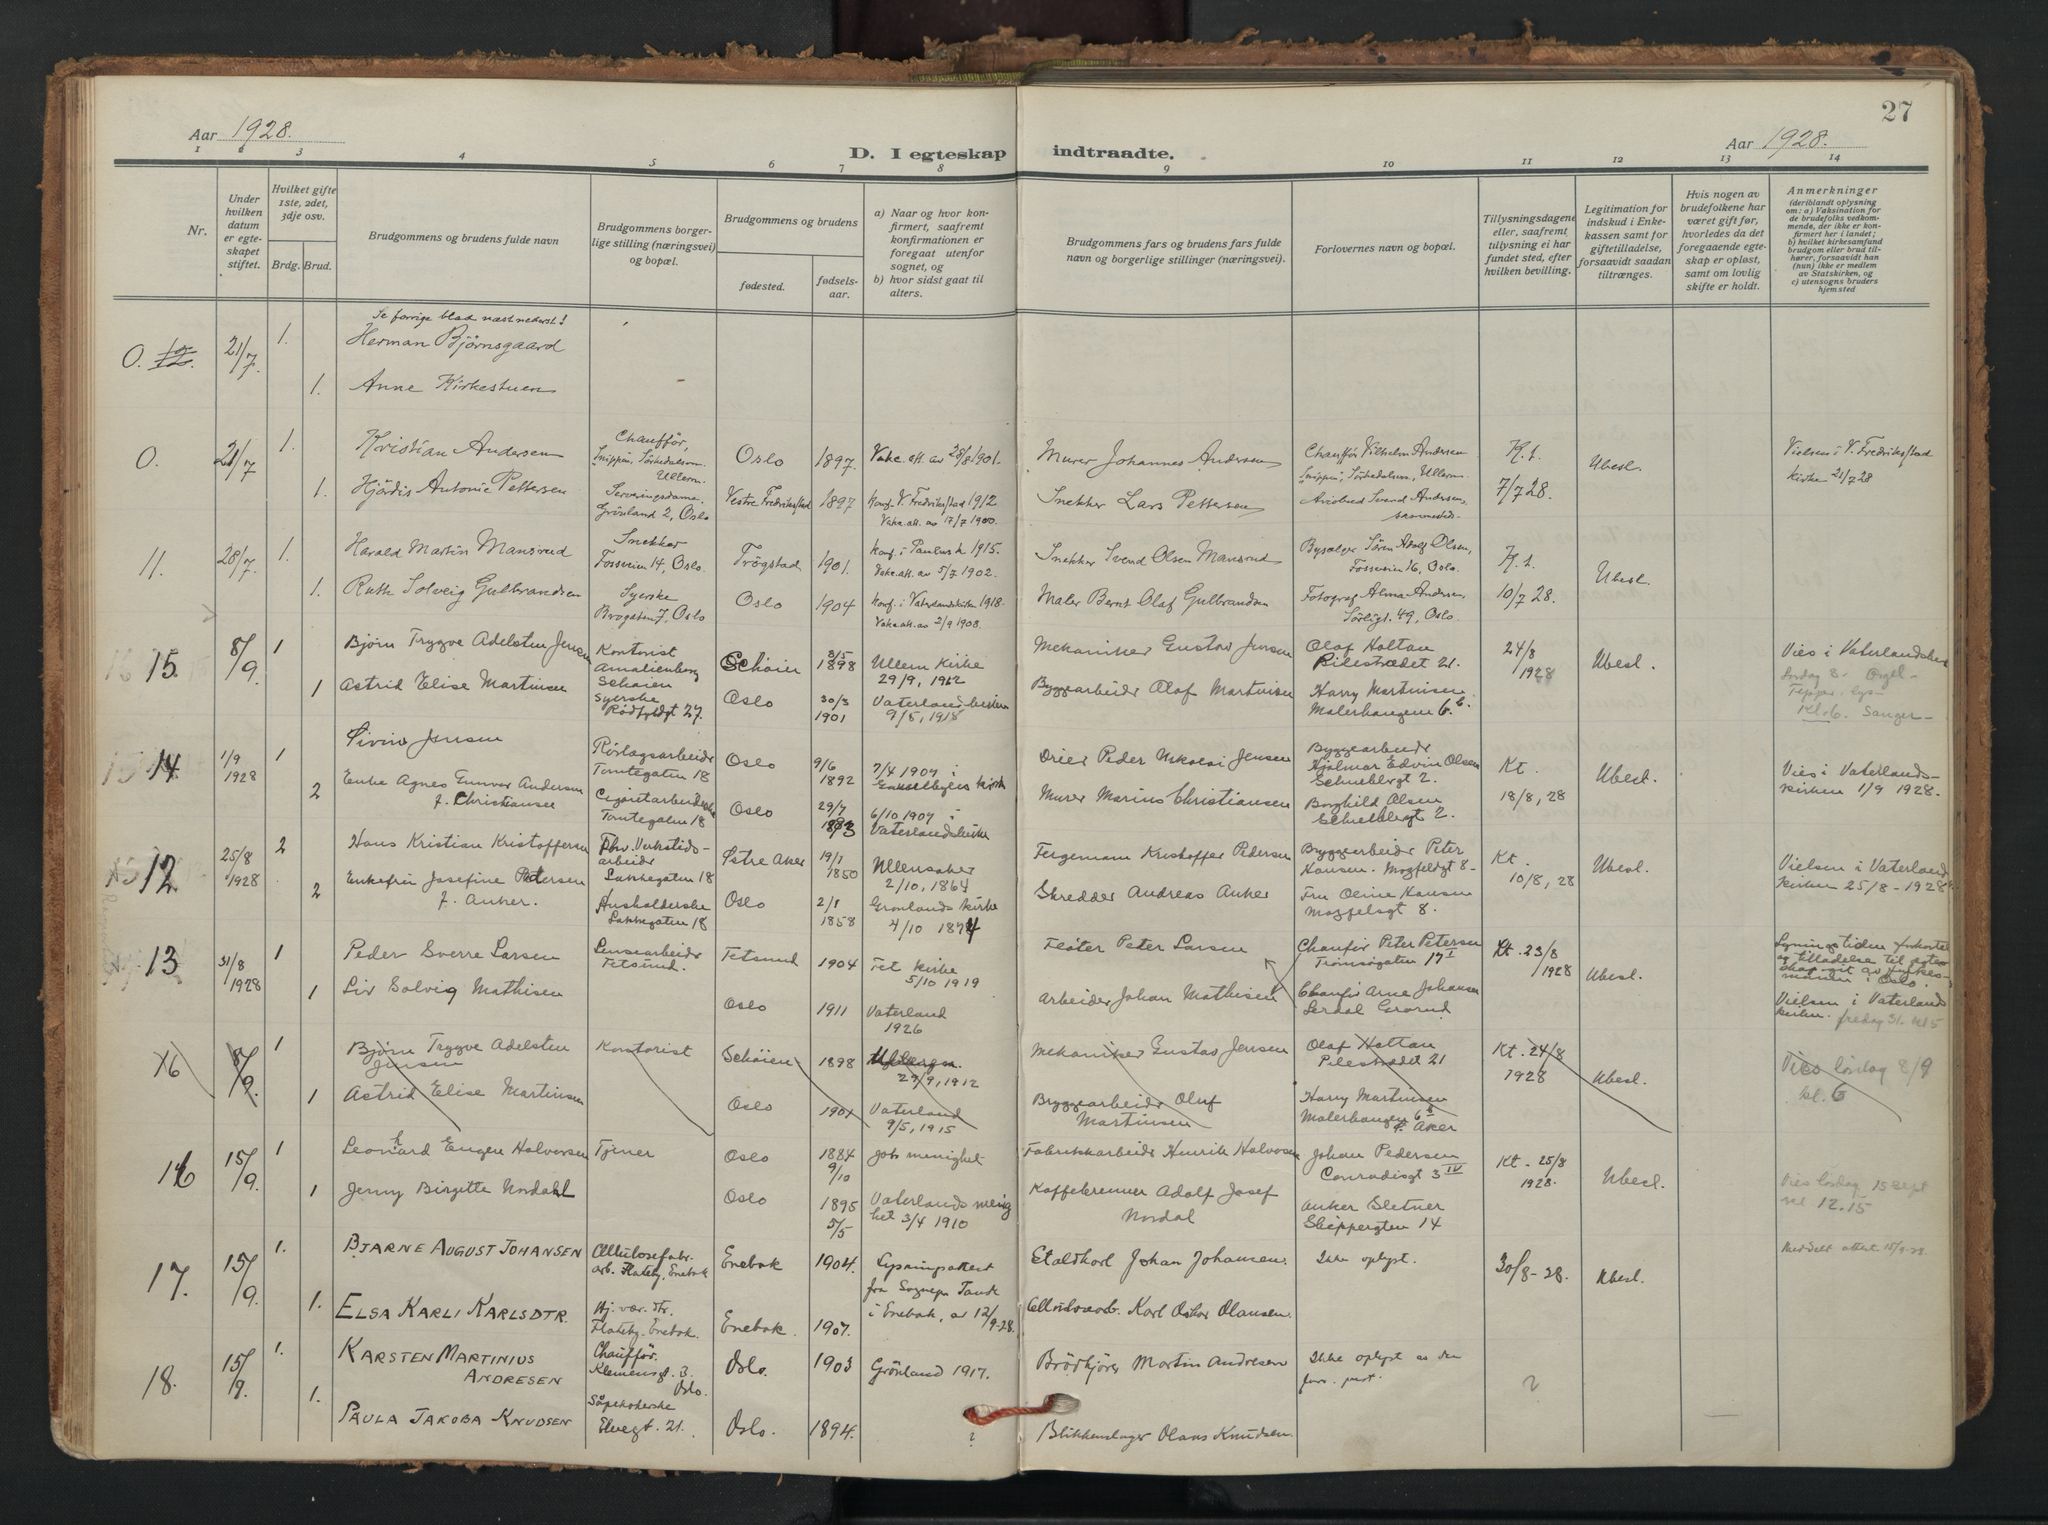 27
Aar 1928.
Aar 1928.
D. I egteskap indtraadte.
1 2 3 4 5 6 7 8 9 10 11 12 13 14
Nr.
Under hvilken datum er egteskapet stiftet.
Hvilket gifte 1ste, 2det, 3dje osv.
Brdg. Brud.
Brudgommens og brudens fulde navn
Brudgommens borgerlige stilling (næringsvei) og bopæl.
Brudgommens og brudens
fødested.
fødselsaar.
a) Naar og hvor konfirmert, saafremt konfirmationen er foregaat utenfor sognet, og
b) hvor sidst gaat til alters.
Brudgommens fars og brudens fars fulde navn og borgerlige stillinger (næringsvei).
Forlovernes navn og bopæl.
Tillysningsdagene eller, saafremt tillysning ei har fundet sted, efter hvilken bevilling.
Legitimation for indskud i Enkekassen samt for giftetilladelse, forsaavidt saadan tiltrænges.
Hvis nogen av brudefolkene har været gift før, hvorledes da det foregaaende egteskap er opløst, samt om lovlig skifte er holdt.
Anmerkninger
(deriblandt oplysning om: a) Vaksination for de brudefolks vedkommende, der ikke er konfirmert her i landet; b) hvilket kirkesamfund brudgom eller brud tilhører, forsaavidt han (hun) ikke er medlem av Statskirken, og c) utensogns bruders hjemsted
Se forrige blad næst nederst!
0. 12. 21/7 1. Herman Bjørnsgaard
1. Anne Kirkestuen
0. 21/7 1. Kristian Andersen Chauffør, Snippen, Sørkedalsvn. Ullern Oslo 1897. Vakc. att. av 28/8 1901. Murer Johannes Andersen Chauffør Vilhelm Andersen Snippen, Sørkedalsvn, Ullern K. 1. Ubesl. Vielsen i V. Fredrikstad kirke 21/7 28
1. Hjördis Antonie Pettersen Serveringsdame. Grönland 2, Oslo Vestre Fredrikstad 1897 Konf. V. Fredrikstad 1912 Vakc. att. av 17/7 1900. Snekker Lars Pettersen Svend Andersen, sammesteds. 7/7 28.
11. 28/7. 1. Harald Martin Mansrud Snekker Fossveien 14, Oslo. Trögstad 1901. Konf. i Paulusk 1915. Vakc. att. av 5/7 1902. Snekker Svend Olsen Mansrud Søren Adolf Olsen, Fossveien 16, Oslo. K. 1. Ubesl.
1. Ruth Solveig Gulbrandsen Syerske Brogaten 7, Oslo Oslo 1904 Konf. i Vaterlandskirken 1918. Vakc. att. av 2/9 1908. Maler Bernt Olaf Gulbrandsen Fotograf Alma Andersen, Sörligt. 49, Oslo. 10/7 28.
15. 8/9 1 Bjørn Trygve Adelsten Jensen Kontorist Amalienborg Schøien Schøien 3/5 1898 Ullern Kirke 29/9, 1912 Mekaniker Gustav Jensen Olaf Holtan Pilestrædet 21. 24/8 1928 Ubesl. Vies i Vaterlandskir
1 Astrid Elise Martinsen Syerske Rødfyldgt 27. Oslo 30/3 1901 Vaterlandskirken 9/5, 1915 Byggearbeider Olaf Martinsen Harry Martinsen Malerhaugen 6 Lørdag 8. Orgel- Tepper lys- Kl. 6. Sanger-
14. 1/9 1928 1 Øivind Jensen Rørlagsarbeider Tomtegaten 18 Oslo 9/6 1892 7/4 1907 i kirke Peder Nikolai Jensen Byggearbeider Hjalmar Edvin Olsen Schuebbergt 2. Kt. 18/8, 28 Ubesl. Vies i Vaterlandskirken 1/9 1928.
2 Enke Agnes Gunvor Andersen f. Christiansen Cigaretarbeiderske Tomtegaten 18 Oslo 29/7 6/10 1907 i Vaterlandskirke Murer Marius Christiansen Borghild Olsen Schuebbergt 2.
12 25/8 1928 2 Hans Kristian Kristoffersen Fhv. Verkstedsarbeider Lakkegaten 18 Østre Aker 19/1 1850 Ullensaker 2/10, 1864 Fergemann Kristoffer Pedersen Byggearbeider Peter Hansen. Mogfeldgt 8- Kt. 10/8, 28 Ubesl. Vielsen i Vaterlandskirken 25/8 - 1928
2 Enkefru Josefine Pedersen f. Anker. Husholderske Lakkegaten 18 Oslo 2/1 1858 Grønlands kirke 4/10 1874 Skredder Andreas Anker Fru Oline Hansen Mogfeldgt 8.
13 31/8 1928 1 Peder Sverre Larsen Lensearbeider Fetsund. Fetsund 1904 Fet kirke 5/10 1919 Fløter Peter Larsen Chaufør Peter Petersen Tromsøgaten 17 I Kt. 23/8 1928 Ubesl. Lysningstiden forkortet og tilladelse til egteskap git av fylkesmannen i Oslo.
1 Liv Solveig Mathisen Oslo 1911 Vaterland 1926 Arbeider Johan Mathisen Chaufør Arne Johansen Lerdal Grorud Vielsen i Vaterlands kirken. fredag 31. kl 5
16 8/9. 1 Bjørn Trygve Adelsten Jensen Kontorist Schøien 1898 29/9, 1912 Mekaniker Gustav Jensen Olaf Holtan Pilestrædet 21 Kt. 24/8 1928 Ubesl. Vies lördag 8/9 kl. 6
1 Astrid Elise Martinsen Oslo 1901 Vaterland 9/5, 1915 Bryggearbeider Oluf Martinsen Harry Martinsen Malerhaugen 6 Ø. Aker
16 15/9. 1 Leonhard Eugen Halvorsen Tjener Oslo 1884 9/10 Jobs menighet Fabrikkarbeider Henrik Halvorsen Johan Pedersen Conradisgt 3 IV Kt. 25/8 1928. Ubesl. Vies lördag 15 Sept kl 12.15
1 Jenny Birgitte Nordahl Oslo 1895 5/5 Vaterlands menighet 3/4 1910 Kaffebrenner Adolf Josef Nordal Anker Sletner Skippergten 14
17. 15/9. 1. BJARNE AUGUST JOHANSEN Cellulosefabr. arb. Flateby, Enebak Enebak 1904. Lysningsattest fra Sognepr. Tande i Enebak, av 12/9-28. Staldkarl Johan Johansen. Ikke oplyst. 30/8-28. Ubesl. Meddelt attest 15/9-28.
1. ELSA KARLI KARLSDTR. Hj. vær. dtr. Flateby, Enebak. Enebak. 1907. Cellulosearb. Karl Oskar Olausen.
18. 15/9. 1. KARSTEN MARTINIUS ANDRESEN Chauffør. Klemensgt. 3. Oslo. Oslo. 1903 Grönland 1917. Brödkjører Martin Andresen Ikke oplyst av den ?
1. PAULA JAKOBA KNUDSEN Såpekokerske Elvegt. 21. Oslo. 1894. ? Blikkenslager Olaus Knudsen.